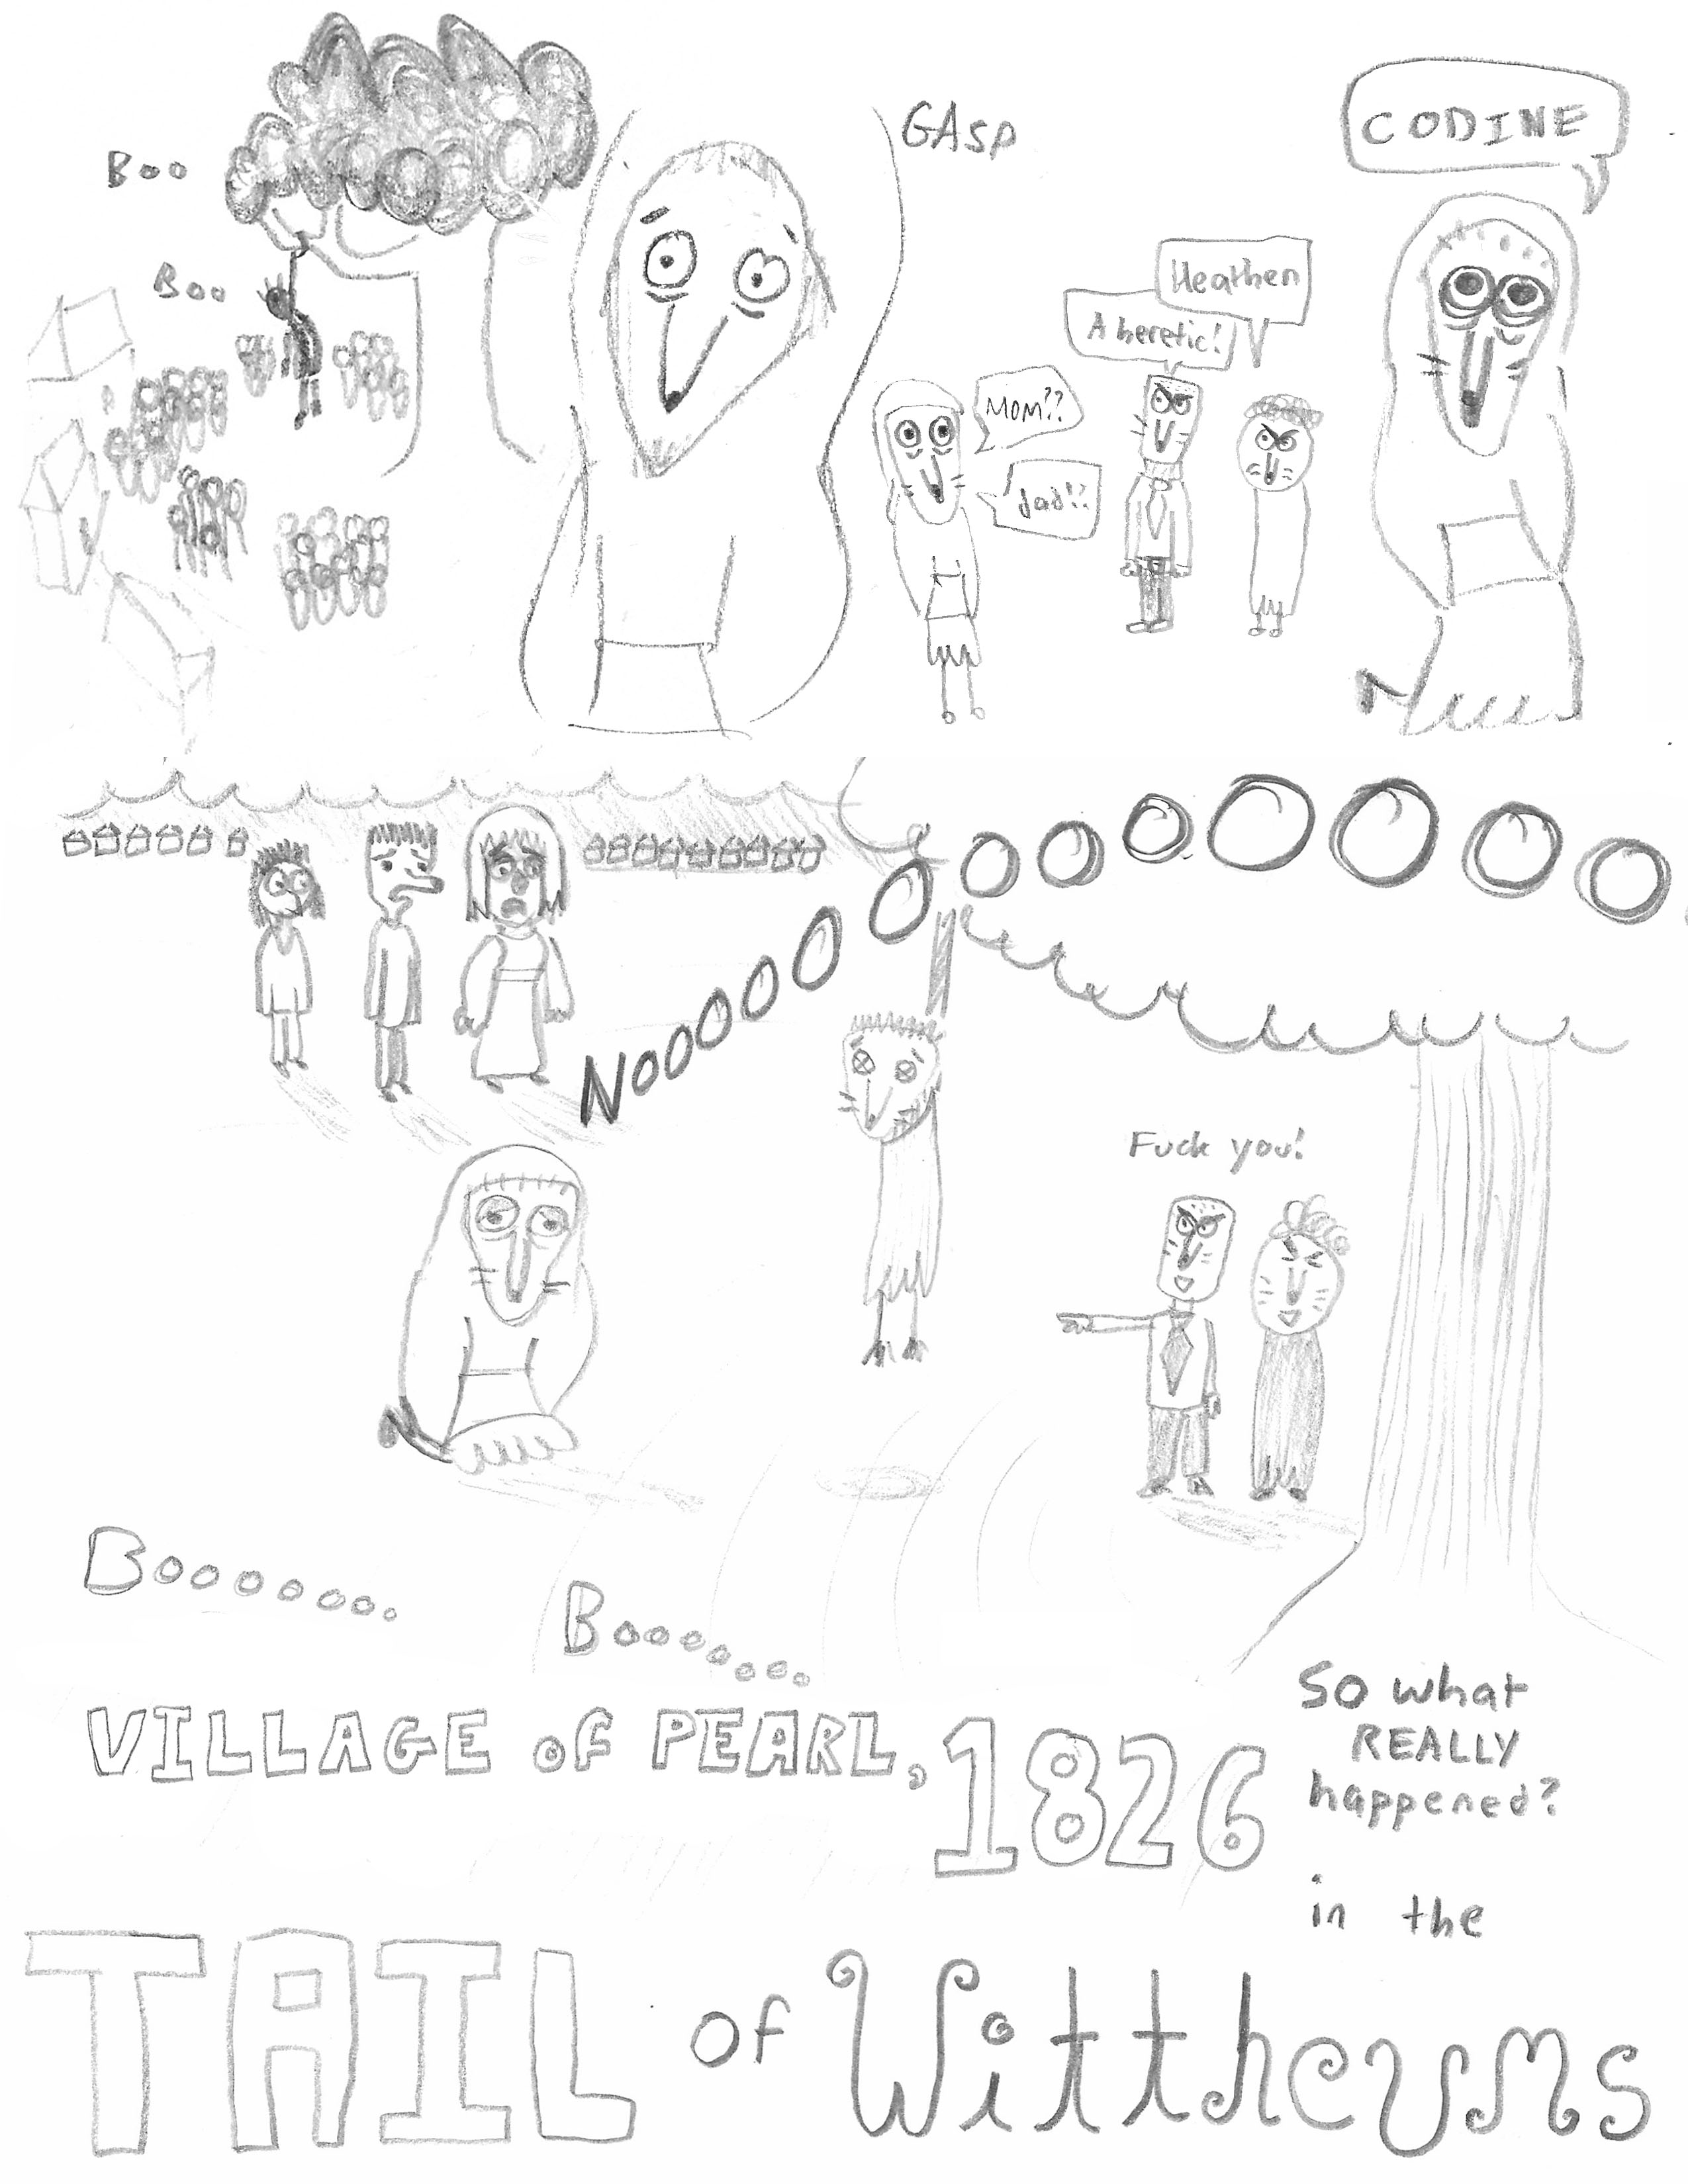 Boo
Boo
GASP
MOM??
dad!?
A heretic!
Heathen
CODINE
NOOOOOOOOOOOOOO
Fuck you!
Booooooo.
Boooooooo
VILLAGE of PEARL, 1826
So what
REALLY
happened?
in the
TAIL of Wittheums